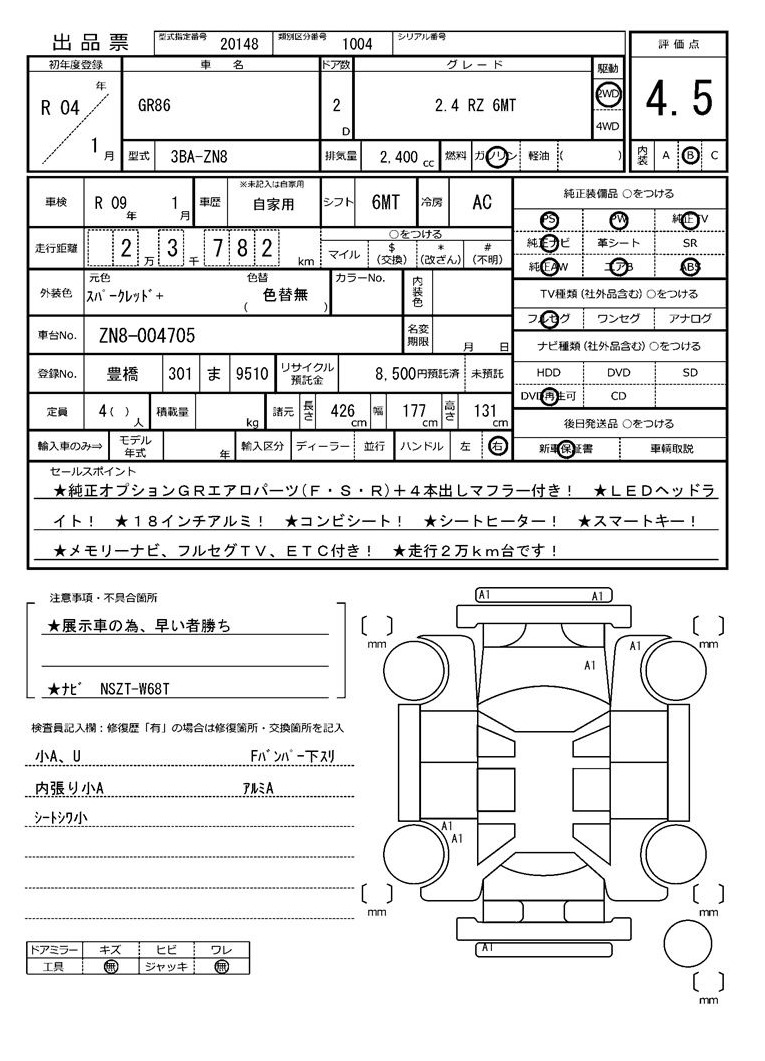 出品票 型式指定番号 20148 類別区分番号 1004 シリアル番号
評価点
4.5
内装 A B C
初年度登録 車名 ドア数 グレード 駆動
R 04 年 1 月 GR86 2 D 2.4 RZ 6MT 2WD 4WD
型式 3BA-ZN8 排気量 2,400 cc 燃料 ガソリン 軽油 ( )
車検 R 09 年 1 月 車歴 ※未記入は自家用 自家用 シフト 6MT 冷房 AC
走行距離 2 万 3 千 7 8 2 km ○をつける マイル $ (交換) * (改ざん) # (不明)
外装色 元色 スパークレッド+ 色替 ( 色替無 ) カラーNo. 内装色
車台No. ZN8-004705 名変期限 月 日
登録No. 豊橋 301 ま 9510 リサイクル預託金 8,500円預託済 未預託
定員 4( ) 人 積載量 kg 諸元 長さ 426 cm 幅 177 cm 高さ 131 cm
輸入車のみ⇒ モデル年式 年 輸入区分 ディーラー 並行 ハンドル 左 右
純正装備品 ○をつける
PS PW 純正TV
純正ナビ 革シート SR
純正AW エアB ABS
TV種類 (社外品含む) ○をつける
フルセグ ワンセグ アナログ
ナビ種類 (社外品含む) ○をつける
HDD DVD SD
DVD再生可 CD
後日発送品 ○をつける
新車保証書 車輌取説
セールスポイント
★純正オプションGRエアロパーツ(F・S・R)+4本出しマフラー付き! ★LEDヘッドラ
イト! ★18インチアルミ! ★コンビシート! ★シートヒーター! ★スマートキー!
★メモリーナビ、フルセグTV、ETC付き! ★走行2万km台です!
注意事項・不具合箇所
★展示車の為、早い者勝ち
★ナビ NSZT-W68T
検査員記入欄:修復歴「有」の場合は修復箇所・交換箇所を記入
小A、U Fバンパー下スリ
内張り小A アルミA
シートシワ小
ドアミラー キズ ヒビ ワレ
工具 無 ジャッキ 無
A1 A1
[ ] mm [ ] mm
A1
A1
A1
A1
[ ] mm [ ] mm
A1
[ ] mm